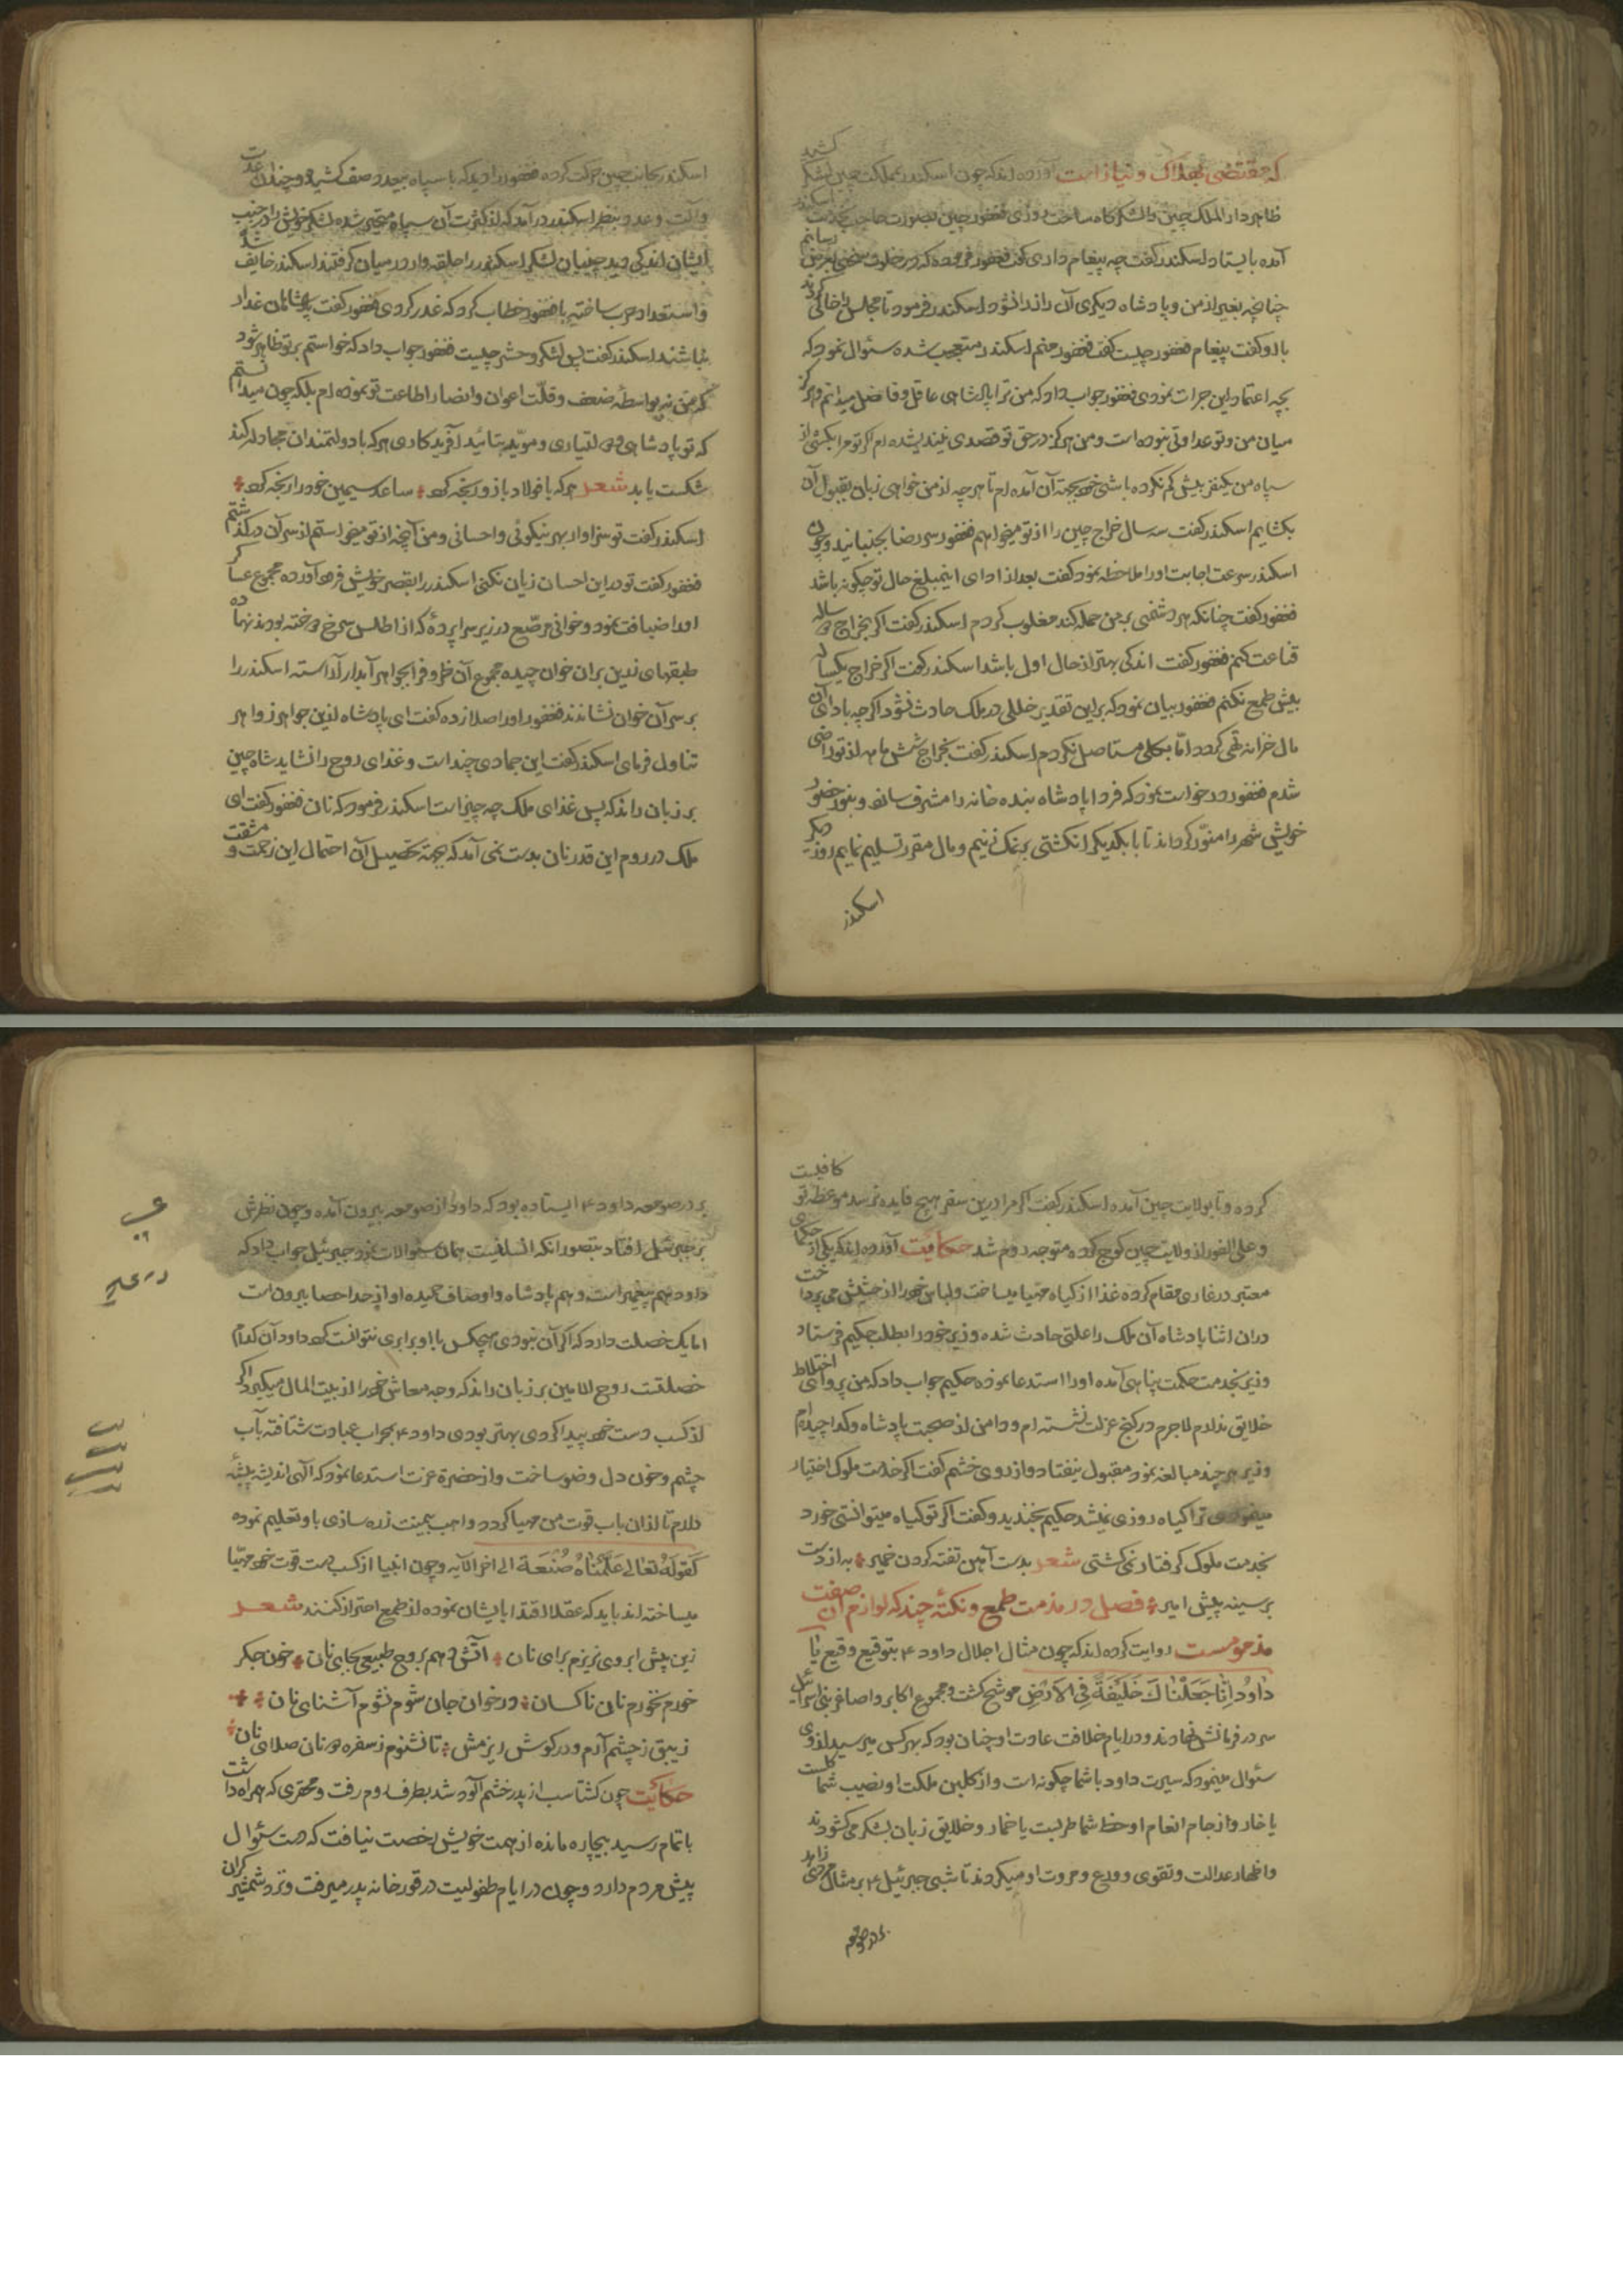 که مقتضی هلاک و نیاز است آورده‌اند که چون اسکندر بمملکت چین لشکر کشید
ظاهر دار الملک چین را لشکرگاه ساخت روزی فغفور چین بصورت حاجب بخدمت اسکندر
آمده بایستاد اسکندر گفت چه پیغام داری گفت فغفور فرموده که در خلوت بعرض رسانم
چنانچه بغیر از من و پادشاه دیگری آن راز را نشنود اسکندر فرمود تا مجلس را خالی کردند
با او گفت پیغام فغفور چیست گفت فغفور منم اسکندر متعجب شده سئوال نمود که
بچه اعتماد این جرات نمودی فغفور جواب داد که من ترا پادشاهی عاقل و فاضل میدانم و هرگز
میان من و تو عداوتی نبوده است و من هرگز در حق تو قصدی نیندیشده ام اگر تو مرا بکشی از
سپاه من یکنفر بیش کم نکرده باشی بجهة آن آمده ام تا هر چه از من خواهی زبان بقبول آن
بکشایم اسکندر گفت سه سال خراج چین را از تو میخواهم فغفور سر رضا بجنبانید و چون
اسکندر سرعت اجابت او را ملاحظه نمود گفت بعد از ادای اینمبلغ حال تو چگونه باشد
فغفور گفت چنانکه هر دشمنی بر من حمله کند مغلوب گردم اسکندر گفت اگر بخراج دو ساله
قناعت کنم فغفور گفت اندکی بهتر از حال اول باشد اسکندر گفت اگر خراج یکساله
بیش طمع نکنم فغفور بیان نمود که بر این تقدیر خللی در ملک حادث نشود اگر چه بادای آن
مال خزانه تهی گردد اما بکلی مستاصل نکردم اسکندر گفت بخراج شش ماهه از تو راضی
شدم فغفور درخواست نمود که فردا پادشاه بنده خانه را مشرف سازد و بنور حضور
خویش شهر را منور گرداند تا با یکدیگر انگشتی بر نمک زنیم و مال مقرر تسلیم نمایم روز دیگر
اسکندر
اسکندر بجانب چین حرکت کرده فغفور را دید که با سپاه بیحد و صف کشیده و چندان عدت
و آلت و عدد بنظر اسکندر در آمد که از کثرت آن سپاه متحیر شده لشکر خویش را در جنب
ایشان اندکی دید چینیان لشکر اسکندر را حلقه وار در میان گرفتند اسکندر خایف شده
و استعداد حرب ساخته با فغفور خطاب کرد که غدر کردی فغفور گفت پادشاهان غدار
نباشند اسکندر گفت پس لشکر و حشر چیست فغفور جواب داد که خواستم بر تو ظاهر شود
که من نه بواسطهٔ ضعف و قلّت اعوان و انصار اطاعت تو نموده ام بلکه چون میدانستم
که تو پادشاهی و موید بتائید آفریدکاری هر که با دولتمندان مجادله کند
شکست یابد شعر هر که با فولاد بازو پنجه کرد ؛ ساعد سیمین خود را رنجه کرد ؛
اسکندر گفت تو سزاوار بهر نیکوئی و احسانی و من آنچه از تو میخواستم از سر آن درگذشتم
فغفور گفت تو در این احسان زیان نکنی اسکندر را بقصر خویش فرود آورده مجموع عساکر
او را ضیافت نمود و خوانی مرصّع در زیر سراپردهٔ که از اطلس سرخ دوخته بودند نهاده
طبقهای زرین بر آن خوان چیده مجموع آن ظروف را بجواهر آبدار آراسته اسکندر را
بر سر آن خوان نشاندند فغفور او را صلا زده گفت ای پادشاه از این جواهر زواهر
تناول فرمای اسکندر گفت این جمادی چند است و غذای روح را نشاید شاه چین
بر زبان راند که پس غذای ملک چه چیز است اسکندر فرمود که نان فغفور گفت ای
ملک در روم این قدر نان بدست نمی آمد که بجهة تحصیل آن احتمال این زحمت و مشقت
کرده و تا بولایت چین آمده اسکندر گفت اگر مرا درین سفر هیچ فایده نرسد موعظه تو کافیست
و علی الفور از ولایت چین کوچ کرده متوجه روم شد حکایت آورده اند که یکی از حکمای
معتبر در غاری مقام کرده غذا از گیاه مهیا میساخت و لباس خود را از حشیش می پرداخت
در ان اثنا پادشاه آن ملک را علتی حادث شده وزیر خود را بطلب حکیم فرستاد
وزیر بخدمت حکمت پناهی آمده او را استدعا نموده حکیم جواب داد که من پروای اختلاط
خلایق ندارم لاجرم در کنج عزلت نشسته ام و دامن از صحبت پادشاه و گدا چیده‌ام
وزیر هر چند مبالغه نمود مقبول نیفتاد و از روی خشم گفت اگر خدمت ملوک اختیار
مینمودی ترا گیاه روزی نمیشد حکیم بخندید و گفت اگر تو گیاه میتوانستی خورد
بخدمت ملوک گرفتار نمی گشتی شعر بدست آهن تفته کردن خمیر ؛ به از دست
بر سینه پیش امیر ؛ فصل در مذمت طمع و نکتهٔ چند که لوازم آن صفت
مذمومست روایت کرده اند که چون مثال اجلال داود ۴ بتوقیع وقیع یا
داوُدُ اِنّا جَعَلْناكَ خَلیفَةً فِی الاَرْضِ موشح گشت و مجموع اکابر و اصاغر بنی اسرائیل
سر در فرمانش نهادند و در ایام خلافت عادت او چنان بود که بهر کس میرسید از وی
سئوال مینمود که سیرت داود با شما چگونه است و از گلبن ملکت او نصیب شما گلست
یا خار و از جام انعام او حظ شما طربست یا خمار و خلایق زبان بشکر می گشودند
و اظهار عدالت و تقوی و ورع و مروت او میکردند تا شبی جبرئیل ۴ بر مثال مردی زاهد
بر در صومعه
بر در صومعه داود ۴ ایستاده بود که داود از صومعه بیرون آمده و چون نظرش
بر جبرئیل افتاد بتصور انکه انسانیست همان سئوالات نمود جبرئیل جواب داد که
داود هم پیغمبر است و هم پادشاه و اوصاف حمیده او از حد احصا بیرون است
اما یک خصلت دارد که اگر آن نبودی هیچکس با او برابری نتوانست کرد داود آن کدام
خصلتست روح الامین بر زبان راند که وجه معاش خود را از بیت المال میگیرد اگر
از کسب دست خود پیدا کردی بهتر بودی داود ۴ بمحراب عبادت شتافته بآب
چشم و خون دل وضو ساخت و از حضرة عزت استدعا نمود که الهی اندیشه پیشهٔ
دلارم تا از ان باب قوت من مهیا گردد واهب بیمنت زره سازی باو تعلیم نموده
کقوله تعالی عَلَّمْناهُ صَنْعَة الی اخر الآیه و چون انبیا از کسب دست قوت خود مهیّا
میساخته اند باید که عقلا اقتدا بایشان نموده از طمع احتراز کنند شعر
زین پیش ابروی نریزم برای نان ؛ آتش دهم بروح طبیعی بجای نان ؛ خون جگر
خورم نخورم نان ناکسان ؛ در خوان جان شوم نشوم آشنای نان ؛
زیبق ز چشم آرم و در گوش ریزمش ؛ تا نشنوم ز سفره دونان صلای نان ؛
حکایت چون گشتاسب از پدر خشم آلود شد بطرف روم رفت و محقری که همراه داشت
باتمام رسید بیچاره مانده از همت خویش رخصت نیافت که دست سئوال
پیش مردم دارد و چون در ایام طفولیت در قورخانه پدر میرفت و نزد شمشیر گران